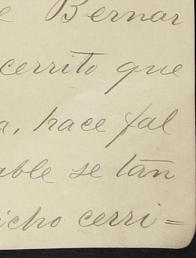 e Bernar
cerrito que
a, hace fal
able se tan
icho cerri=